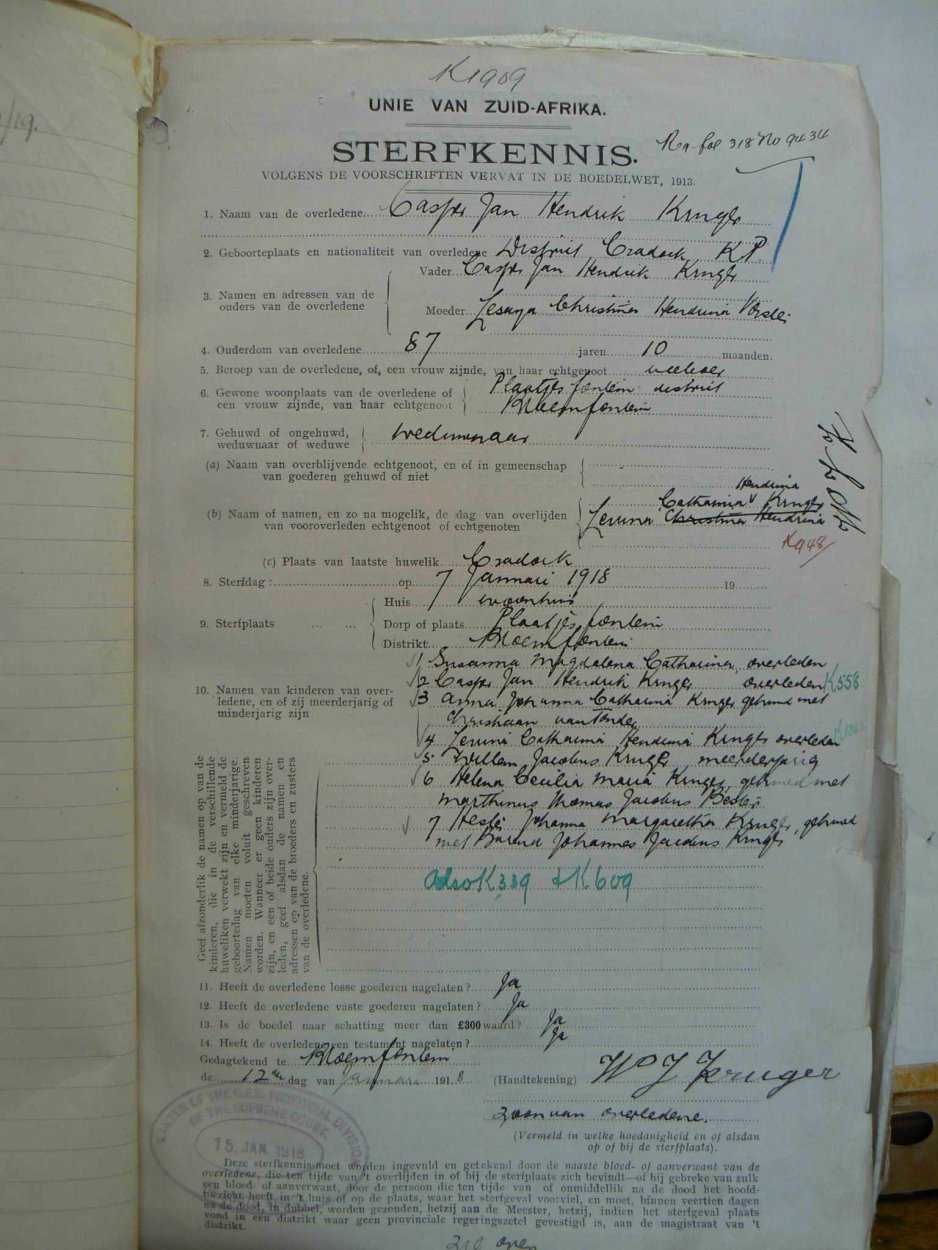 K1909
UNIE VAN ZUID-AFRIKA.
Rg-fol 318 No 9434
STERFKENNIS.
VOLGENS DE VOORSCHRIFTEN VERVAT IN DE BOEDELWET, 1913.
1. Naam van de overledene Casper Jan Hendrik Kruger
2. Geboorteplaats en nationaliteit van overledene District Cradock K.P.
3. Namen en adressen van de ouders van de overledene
Vader Casper Jan Hendrik Kruger
Moeder Lesaya Christina Hendrina Vorster
4. Ouderdom van overledene 87 jaren 10 maanden.
5. Beroep van de overledene, of, een vrouw zijnde, van haar echtgenoot
6. Gewone woonplaats van de overledene of een vrouw zijnde, van haar echtgenoot
Plaatjesfontein district
Bloemfontein
7. Gehuwd of ongehuwd, weduwnaar of weduwe weduwnaar
(a) Naam van overblijvende echtgenoot, en of in gemeenschap van goederen gehuwd of niet
(b) Naam of namen, en zo na mogelik, de dag van overlijden van vooroverleden echtgenoot of echtgenoten
Hendrina
Catharina Kruger
Christina Hendrina
K948
(c) Plaats van laatste huwelik Cradock
8. Sterfdag: op 7 Januari 1918 19
9. Sterfplaats
Huis woonhuis
Dorp of plaats Plaatjesfontein
Distrikt Bloemfontein
10. Namen van kinderen van overledene, en of zij meerderjarig of minderjarig zijn
1 Susanna Magdalena Catharina, overleden
2 Casper Jan Hendrik Kruger overleden K558
3 Anna Johanna Catharina Kruger gehuwd met
Christiaan van Tonder
4 Catharina Hendrina Kruger overleden
5 Willem Jacobus Kruger meerderjarig
6 Helena Cecilia Maria Kruger, gehuwd met
Marthinus Thomas Jacobus Bester
7 Hester Johanna Margaretha Kruger, gehuwd
met Barend Johannes Jacobus Kruger
Also K339 & K609
Geef afzonderlik de namen op van de
kinderen, die in de verschillende
huweliken verwekt zijn en vermeld de
geboortedag van elke minderjarige.
Namen moeten voluit geschreven
worden. Wanneer er geen kinderen
zijn, en een of beide ouders zijn over-
leden, geef alsdan de namen en
adressen op van de broeders en zusters
van de overledene.
11. Heeft de overledene losse goederen nagelaten? Ja
12. Heeft de overledene vaste goederen nagelaten? Ja
13. Is de boedel naar schatting meer dan £300 waard? Ja
14. Heeft de overledene een testament nagelaten? Ja
Gedagtekend te Bloemfontein
de 12de dag van Januari 1918
(Handtekening) W J Kruger
zoon van overledene.
(Vermeld in welke hoedanigheid en of alsdan
op of bij de sterfplaats).
MASTER OF THE O.F.S. PROVINCIAL DIVISION
OF THE SUPREME COURT.
15 JAN. 1918
Deze sterfkennis moet worden ingevuld en getekend door de naaste bloed- of aanverwant van de
overledene, die ten tijde van 't overlijden in of bij de sterfplaats zich bevindt—of bij gebreke van zulk
een bloed- of aanverwant, door de persoon die ten tijde van of onmiddellik na de dood het hoofd-
toezicht heeft in 't huis of op de plaats, waar het sterfgeval voorviel, en moet, binnen veertien dagen
na de dood, in dubbel, worden gezonden, hetzij aan de Meester, hetzij, indien het sterfgeval plaats
vond in een distrikt waar geen provinciale regeringszetel gevestigd is, aan de magistraat van 't
distrikt.